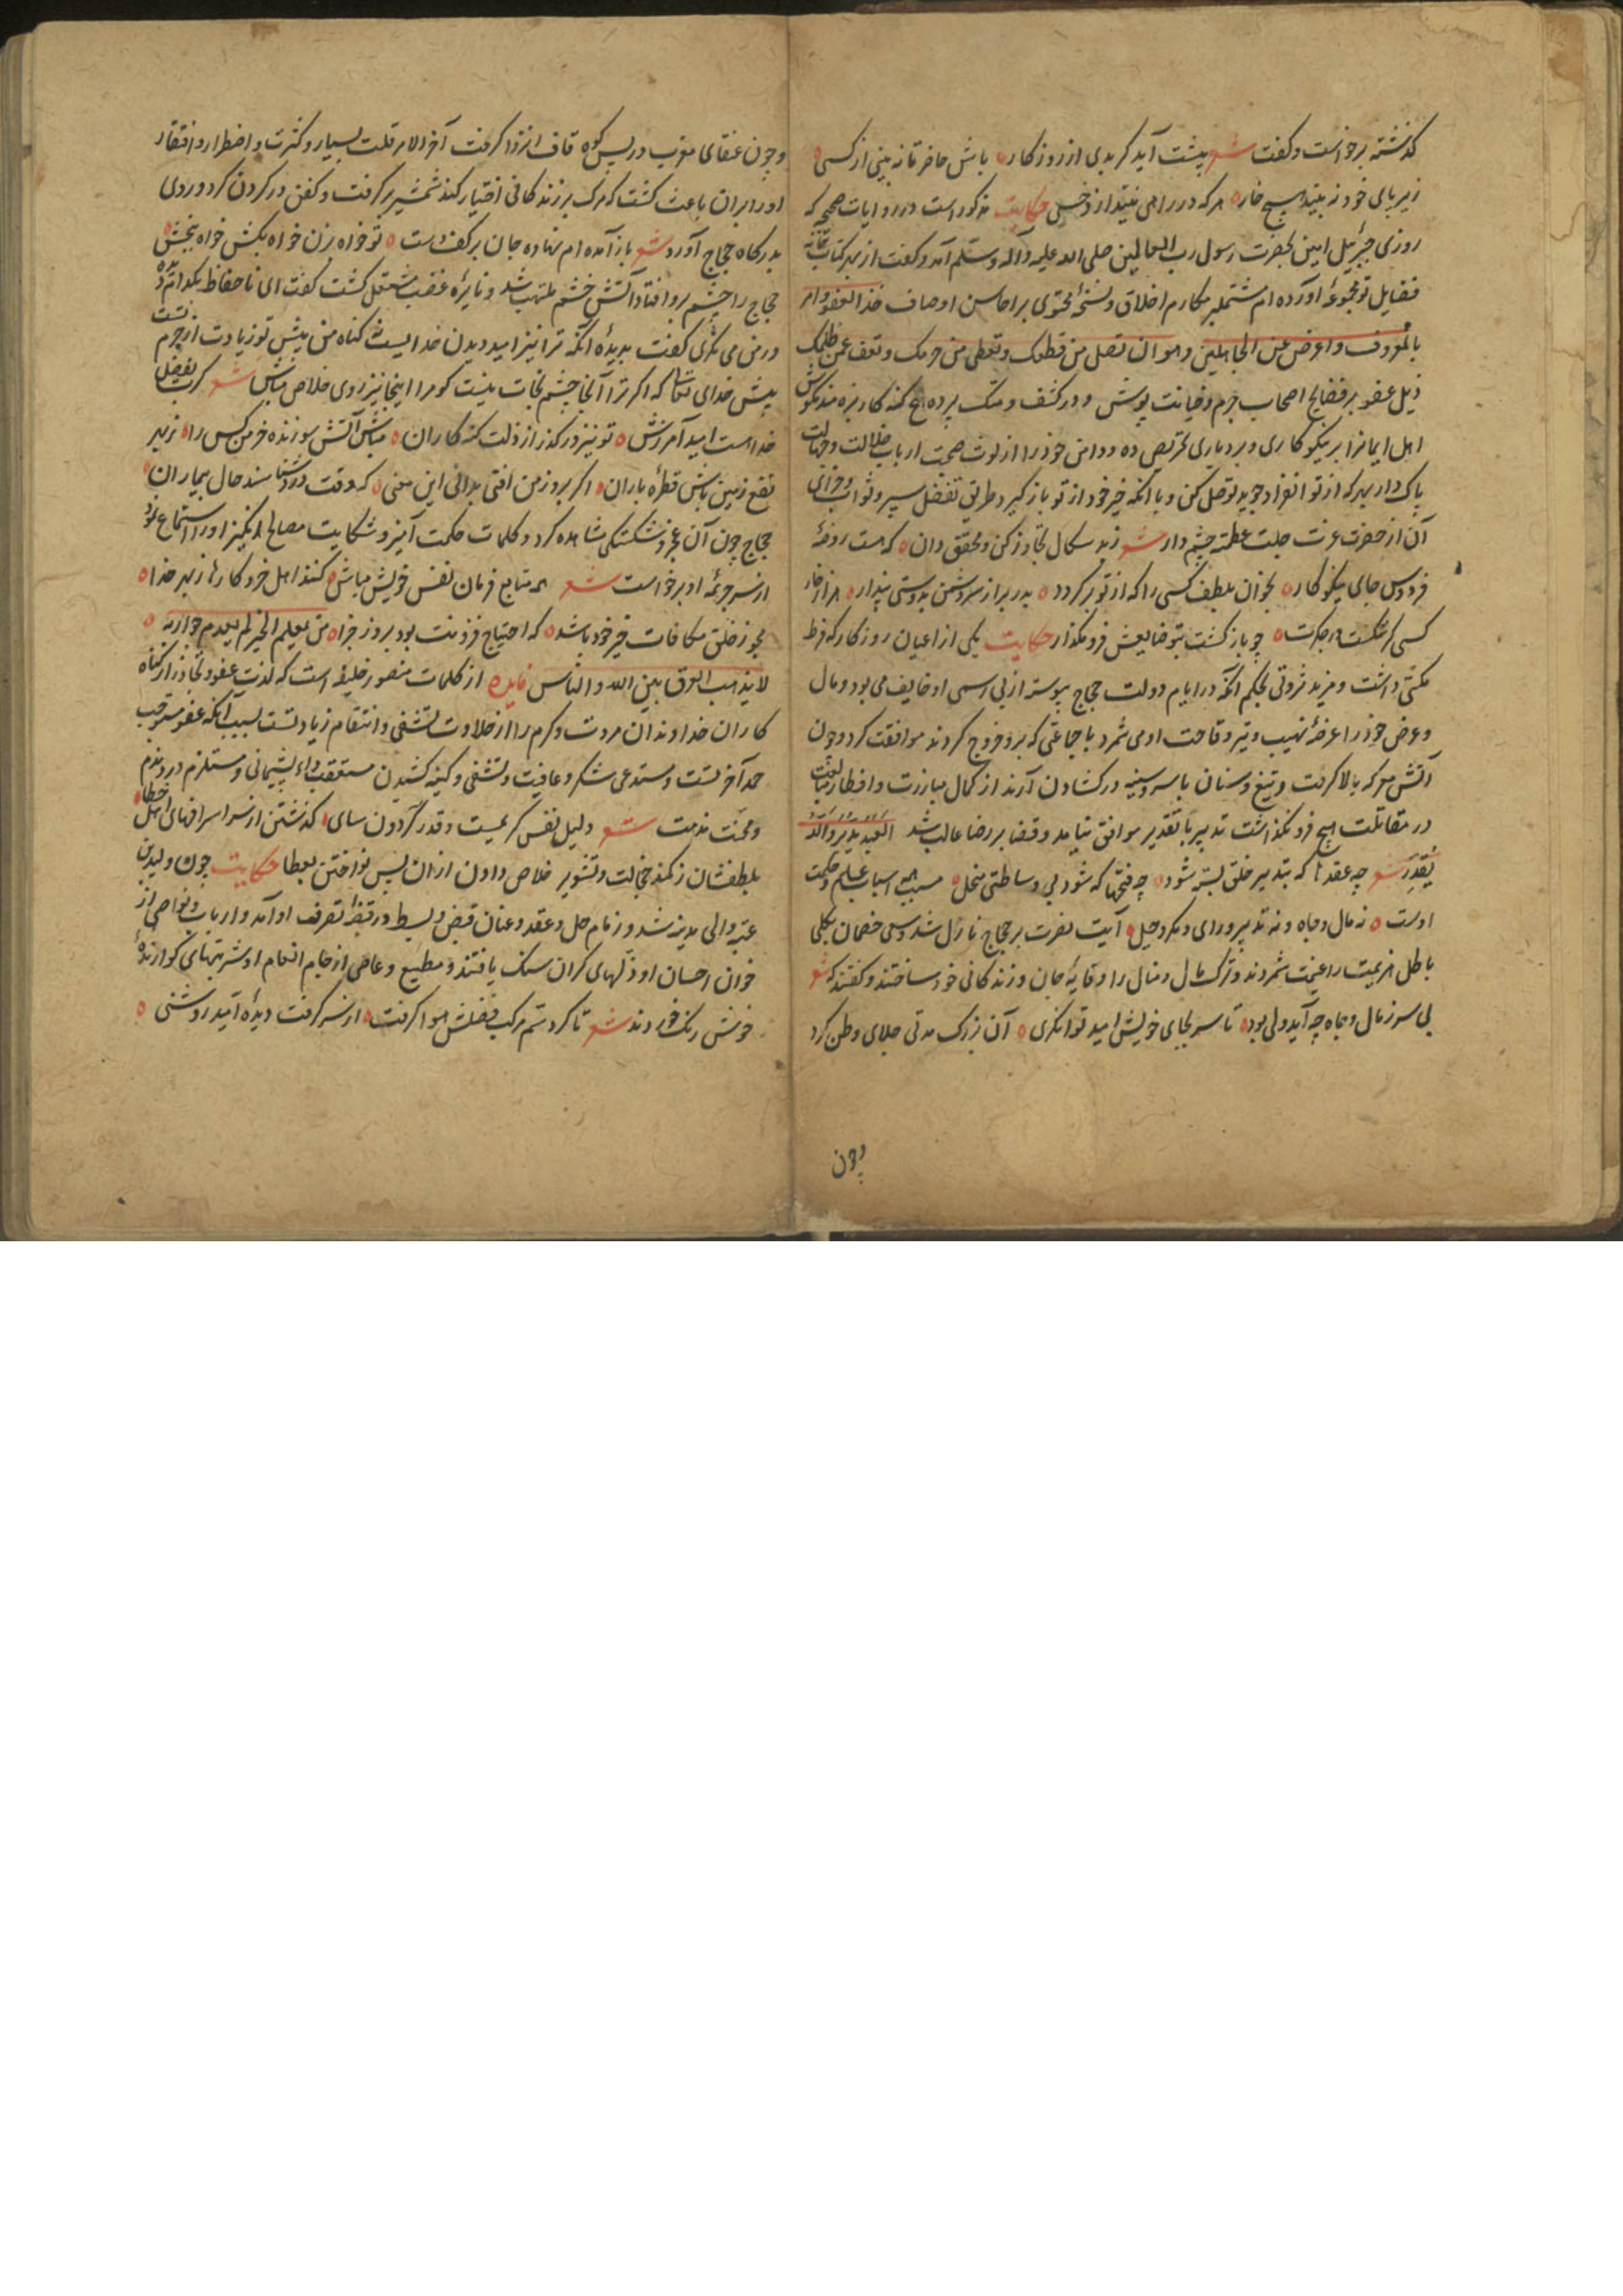 گذشته برخواست و گفت شعر پیشت آید گر بدی از روزگار باش حاضر تا نه بینی از کسی
زیر پای خود نه بیند هیچ خار هر که در راهی نیندازد خسی حکایت مذکور است در روایات صحیح که
روزی جبرئیل امین بحضرت رسول رب العالمین صلی الله علیه و آله وسلم آمد و گفت از بهر کتابخانه
فضایل تو مجموعهٔ آورده ام مشتمل بر مکارم اخلاق و نسخهٔ محتوی بر احاسن اوصاف خذ العفو وامر
بالمعروف واعرض عن الجاهلین وهو ان تصل من قطعک وتعطی من حرمک وتعف عمن ظلمک
ذیل عفو بر فضایح اصحاب جرم و خیانت پوش و در کشف و هتک پرده هیچ گنه کار بزه مند مکوش
اهل ایمانرا بر نیکوکاری و بردباری تحریص ده و دامن خود را از لوث صحبت ارباب ضلالت و جهالت
پاک دار هر که از تو انفراد جوید توصل کن و با آنکه خیر خود از تو باز گیرد طریق تفضل سپر و ثواب و جزای
آن از حضرت عزت جلت عظمته چشم دار شعر زبد سگال تجاوز کن و محقق دان که هست روضهٔ
فردوس جای نیکوکار بخوان بلطف کسی را که از تو برگردد بدر برار سر دشمن بدوستی پندار
کسی که شکست چو باز گشت بتو ضایعش فرو مگذار حکایت یکی از اعیان روزگار که فرط
مکنتی داشت و مزید ثروتی بحکم آنکه در ایام دولت حجاج پیوسته از بی رسمی او خایف می بود و مال
و عرض خود را عرضهٔ نهیب و تیر وقاحت او می شمرد با جماعتی که برو خروج کردند موافقت کرد و چون
آتش معرکه بالا گرفت و تیغ و سنان با سر و سینه در گشادن آرند از کمال مبارزت
در مقاتلت هیچ فرو نگذاشت تدبیر با تقدیر موافق نیامد و قضا بر رضا غالب شد العبد یدبر والله
یقدر شعر چه عقدها که بتدبیر خلق بسته شود چه فتحها که شود بی وساطتی منحل مسبب همه اسباب علم و حکمت
اوست نه مال و جاه و نه تدبیر و رای و مکر و حیل آیت نصرت بر حجاج نازل شد و سعی خصمان بکلی
باطل هزیمت را غنیمت شمردند و ترک مال و منال را وقایهٔ جان و زندگانی خود ساختند و گفتند که شعر
بی سر ز مال و جاه چه آید ولی بود تا سر بجای خویش امید توانگری آن بزرگ مدتی جلای وطن کرد
چون
و چون عنقای مغرب در پس کوه قاف انزوا گرفت آخر الامر قلت بسیار و کثرت اضطرار و افتقار
او را بران باعث گشت که مرگ بر زندگانی اختیار کند شمشیر برگرفت و کفن در گردن کرد و روی
بدرگاه حجاج آورد شعر باز آمده ام نهاده جان بر کف دست تو خواه بزن خواه بکش خواه ببخش
حجاج را چشم برو افتاد آتش خشم ملتهب شد و نایرهٔ غضب مشتعل گشت گفت ای ناحفاظ بکدام
در من می نگری گفت بدیدهٔ آنکه ترا نیز امید دیدن خدایست گناه من پیش تو زیادت از جرم تست
پیش خدای تعالی که اگر ترا آنجا چشم نجات نیست گو مرا اینجا نیز روی خلاص مباش شعر گرت بفضل
خداست امید آمرزش تو نیز در گذر از ذلت گنه کاران مباش آتش سوزنده خرمن کس را ز بهر
نفع زمین باش قطرهٔ باران اگر بروز من افتی بدانی این معنی که وقت درد شناسند حال بیماران
حجاج چون آن عجز و شکستگی مشاهده کرد و کلمات حکمت آمیز و شکایت مصالح انگیز او را استماع نمود
از سر جریمهٔ او برخواست شعر همه متابع فرمان نفس خویش مباش کنند اهل خرد کارها ز بهر خدا
مجو ز خلق مکافات خیر خود باشد که احتیاج فزونت بود بروز جزا من یفعل الخیر لم یعدم جوازیه
لا یذهب العرف بین الله والناس فایده از کلمات منصور خلیفه است که لذت عفو و تجاوز از گناه
کاران خداوندان مروت و کرم را از حلاوت تشفی و انتقام زیادتست بسبب آنکه عفو مستوجب
حمد آخرتست و مستدعی شکر و عافیت و تشفی و کینه کشیدن مستعقب داء پشیمانی و مستلزم درد و ندم
و محنت مذمت شعر دلیل نفس کریمست و قدر گردون سای گذشتن از سر اسرافهای اهل خطا
بلطفشان ز کمند خجالت و تشویر خلاص دادن ازان پس نواختن بعطا حکایت چون ولید بن
عتبه والی مدینه شد و زمام حل و عقد و عنان قبض و بسط در قبضهٔ تصرف او آمد و ارباب و نواصی از
خوان احسان او ذلهای گران سنگ یافتند و مطیع و عاصی از جام انعام او شربتهای گوارندهٔ
خوش رنگ خوردند شعر تا گرد ستم مرکب فضلش هوا گرفت از سر گرفت دیدهٔ امید روشنی